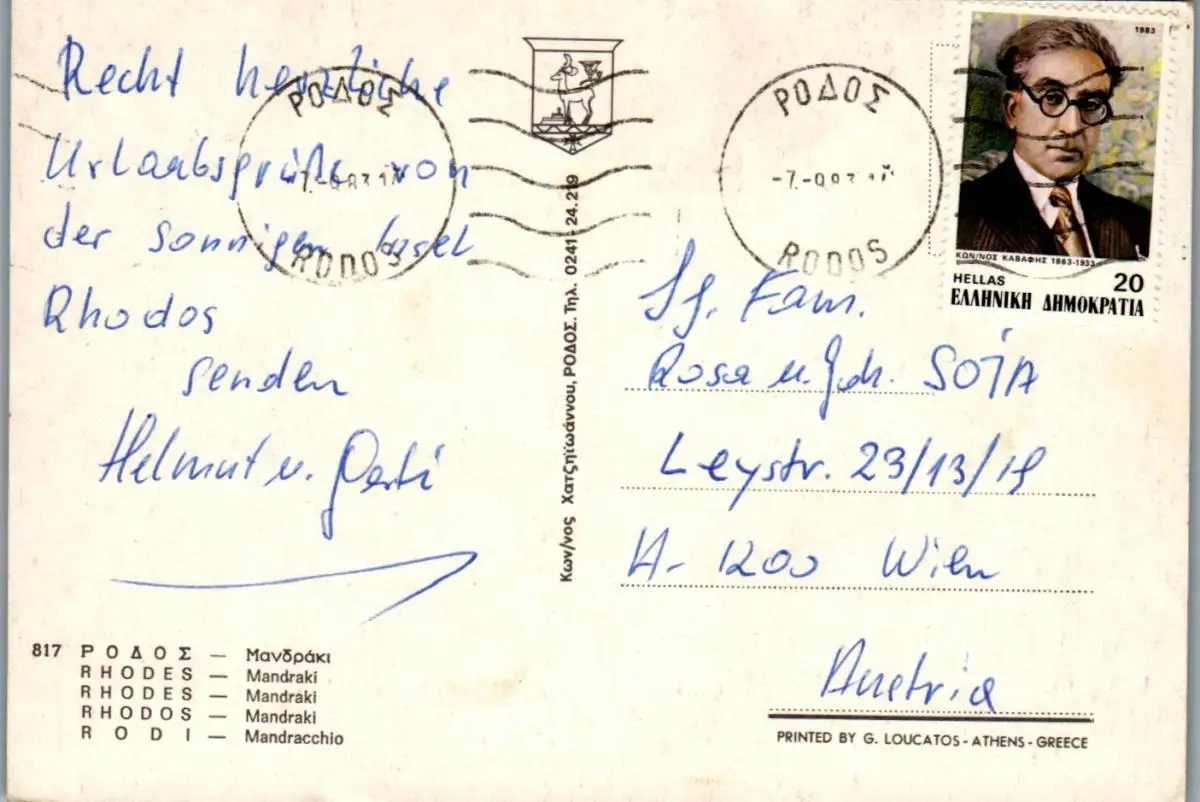 Recht herzliche
Urlaubsgrüße von
der sonnigen Insel
Rhodos
senden
Helmut u.
817 ΡΟΔΟΣ — Μανδράκι
RHODES — Mandraki
RHODES — Mandráki
RHODOS — Mandraki
RODI — Mandracchio
ΡΟΔΟΣ
RODOS
Κων/νος Χατζηϊωάννου, ΡΟΔΟΣ. Τηλ. 0241-24.219
ΡΟΔΟΣ
RODOS
1983
ΚΩΝ/ΝΟΣ ΚΑΒΑΦΗΣ 1863-1933
HELLAS 20
ΕΛΛΗΝΙΚΗ ΔΗΜΟΚΡΑΤΙΑ
Fam.
Rosa u. Joh. SOJA
Leystr. 23/13/19
A-1200 Wien
Austria
PRINTED BY G. LOUCATOS - ATHENS - GREECE